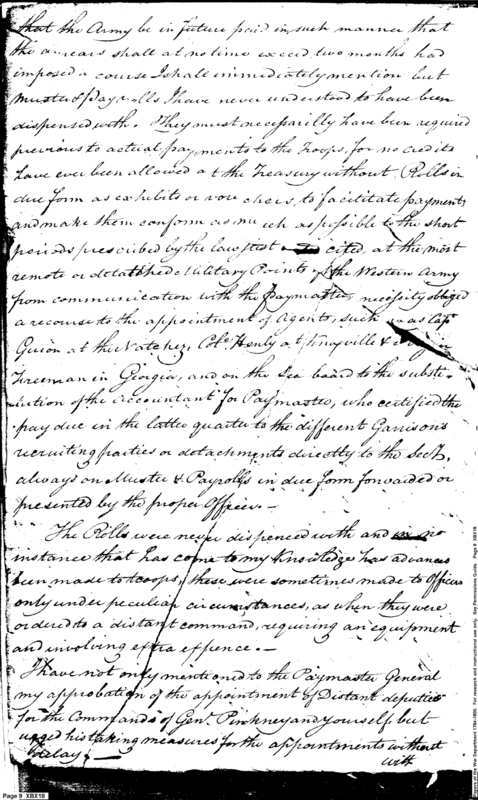 that the Army be in future paid in such manner that
the arrears shall at no time exceed two months had
imposed a course I shall immediately mention but
Muster & Pay rolls I have never understood to have been
dispensed with. They must necessarilly have been required
previous to actual payments to the troops, for no credits
have ever been allowed at the Treasury without Rolls in
due form as exhibits or vouchers, to facilitate payments
and make them conform as much as possible to the short
periods prescribed by the law just cited, at the most
remote or detatched Military Points of the Western Army
from communication with the Paymaster, necessity obliged
a recourse to the appointment of Agents, such as Capt
Guion at the Natchez, Colo. Henly at Knoxville &
Freeman in Giorgia, and on the Sea board to the substi-
tution of the Accountant for Paymaster, who certified the
pay due in the latter quarter to the different Garrisons
recruiting parties or detachments directly to the Secy,
always on Muster & Payrolls in due form forwarded or
presented by the proper Officer. —
The Rolls were never dispenced with and no
instance that has come to my Knowledge has advances
been made to troops, these were sometimes made to Officers
only under peculiar circumstances, as when they were
ordered to a distant command, requiring an equipment
and involving extra expence. —
I have not only mentioned to the Paymaster General
my approbation of the appointment of Distant deputies
for the Commands of Genl. Pinckney and yourself but
urged his taking measures for the appointments without
delay. —
with
Page 9 XBX18
For research and instructional use only. See Permissions Guide. Page 9 XBX18